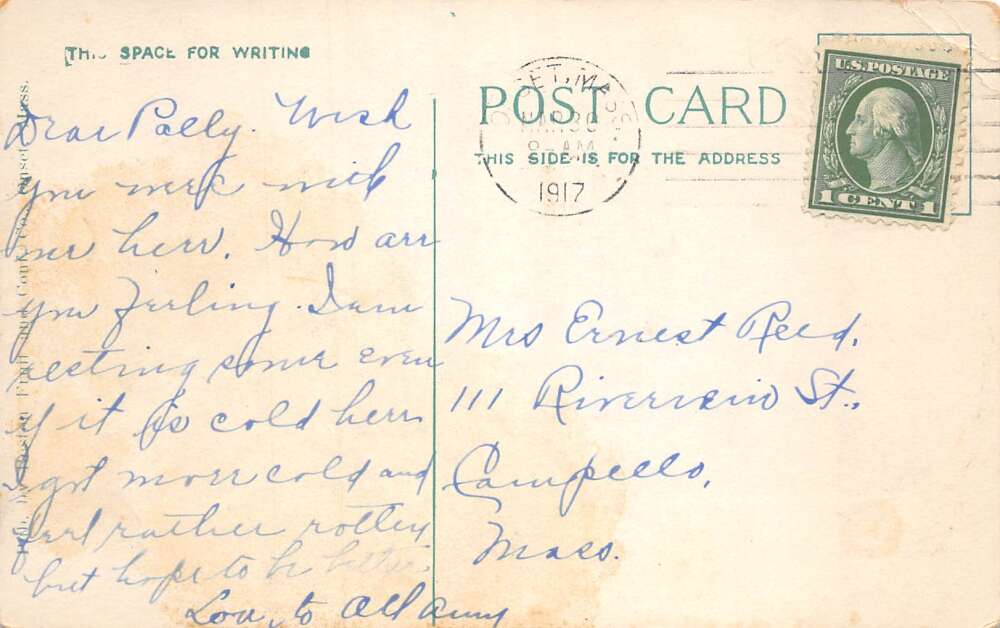 THIS SPACE FOR WRITING
Dear Polly. Wish
you were with
me here. How are
you feeling. I am
resting some even
if it is cold here
I got more cold and
feel rather rotten
but hope to be better.
Love to All Amy
Pub. by Buston Fruit and Conf. Co., Onset, Mass.
POST CARD
THIS SIDE IS FOR THE ADDRESS
ONSET, MASS.
MAR 30
8-AM
1917
U.S. POSTAGE
1 CENT 1
Mrs Ernest Reed.
111 Riverview St.,
Campello,
Mass.